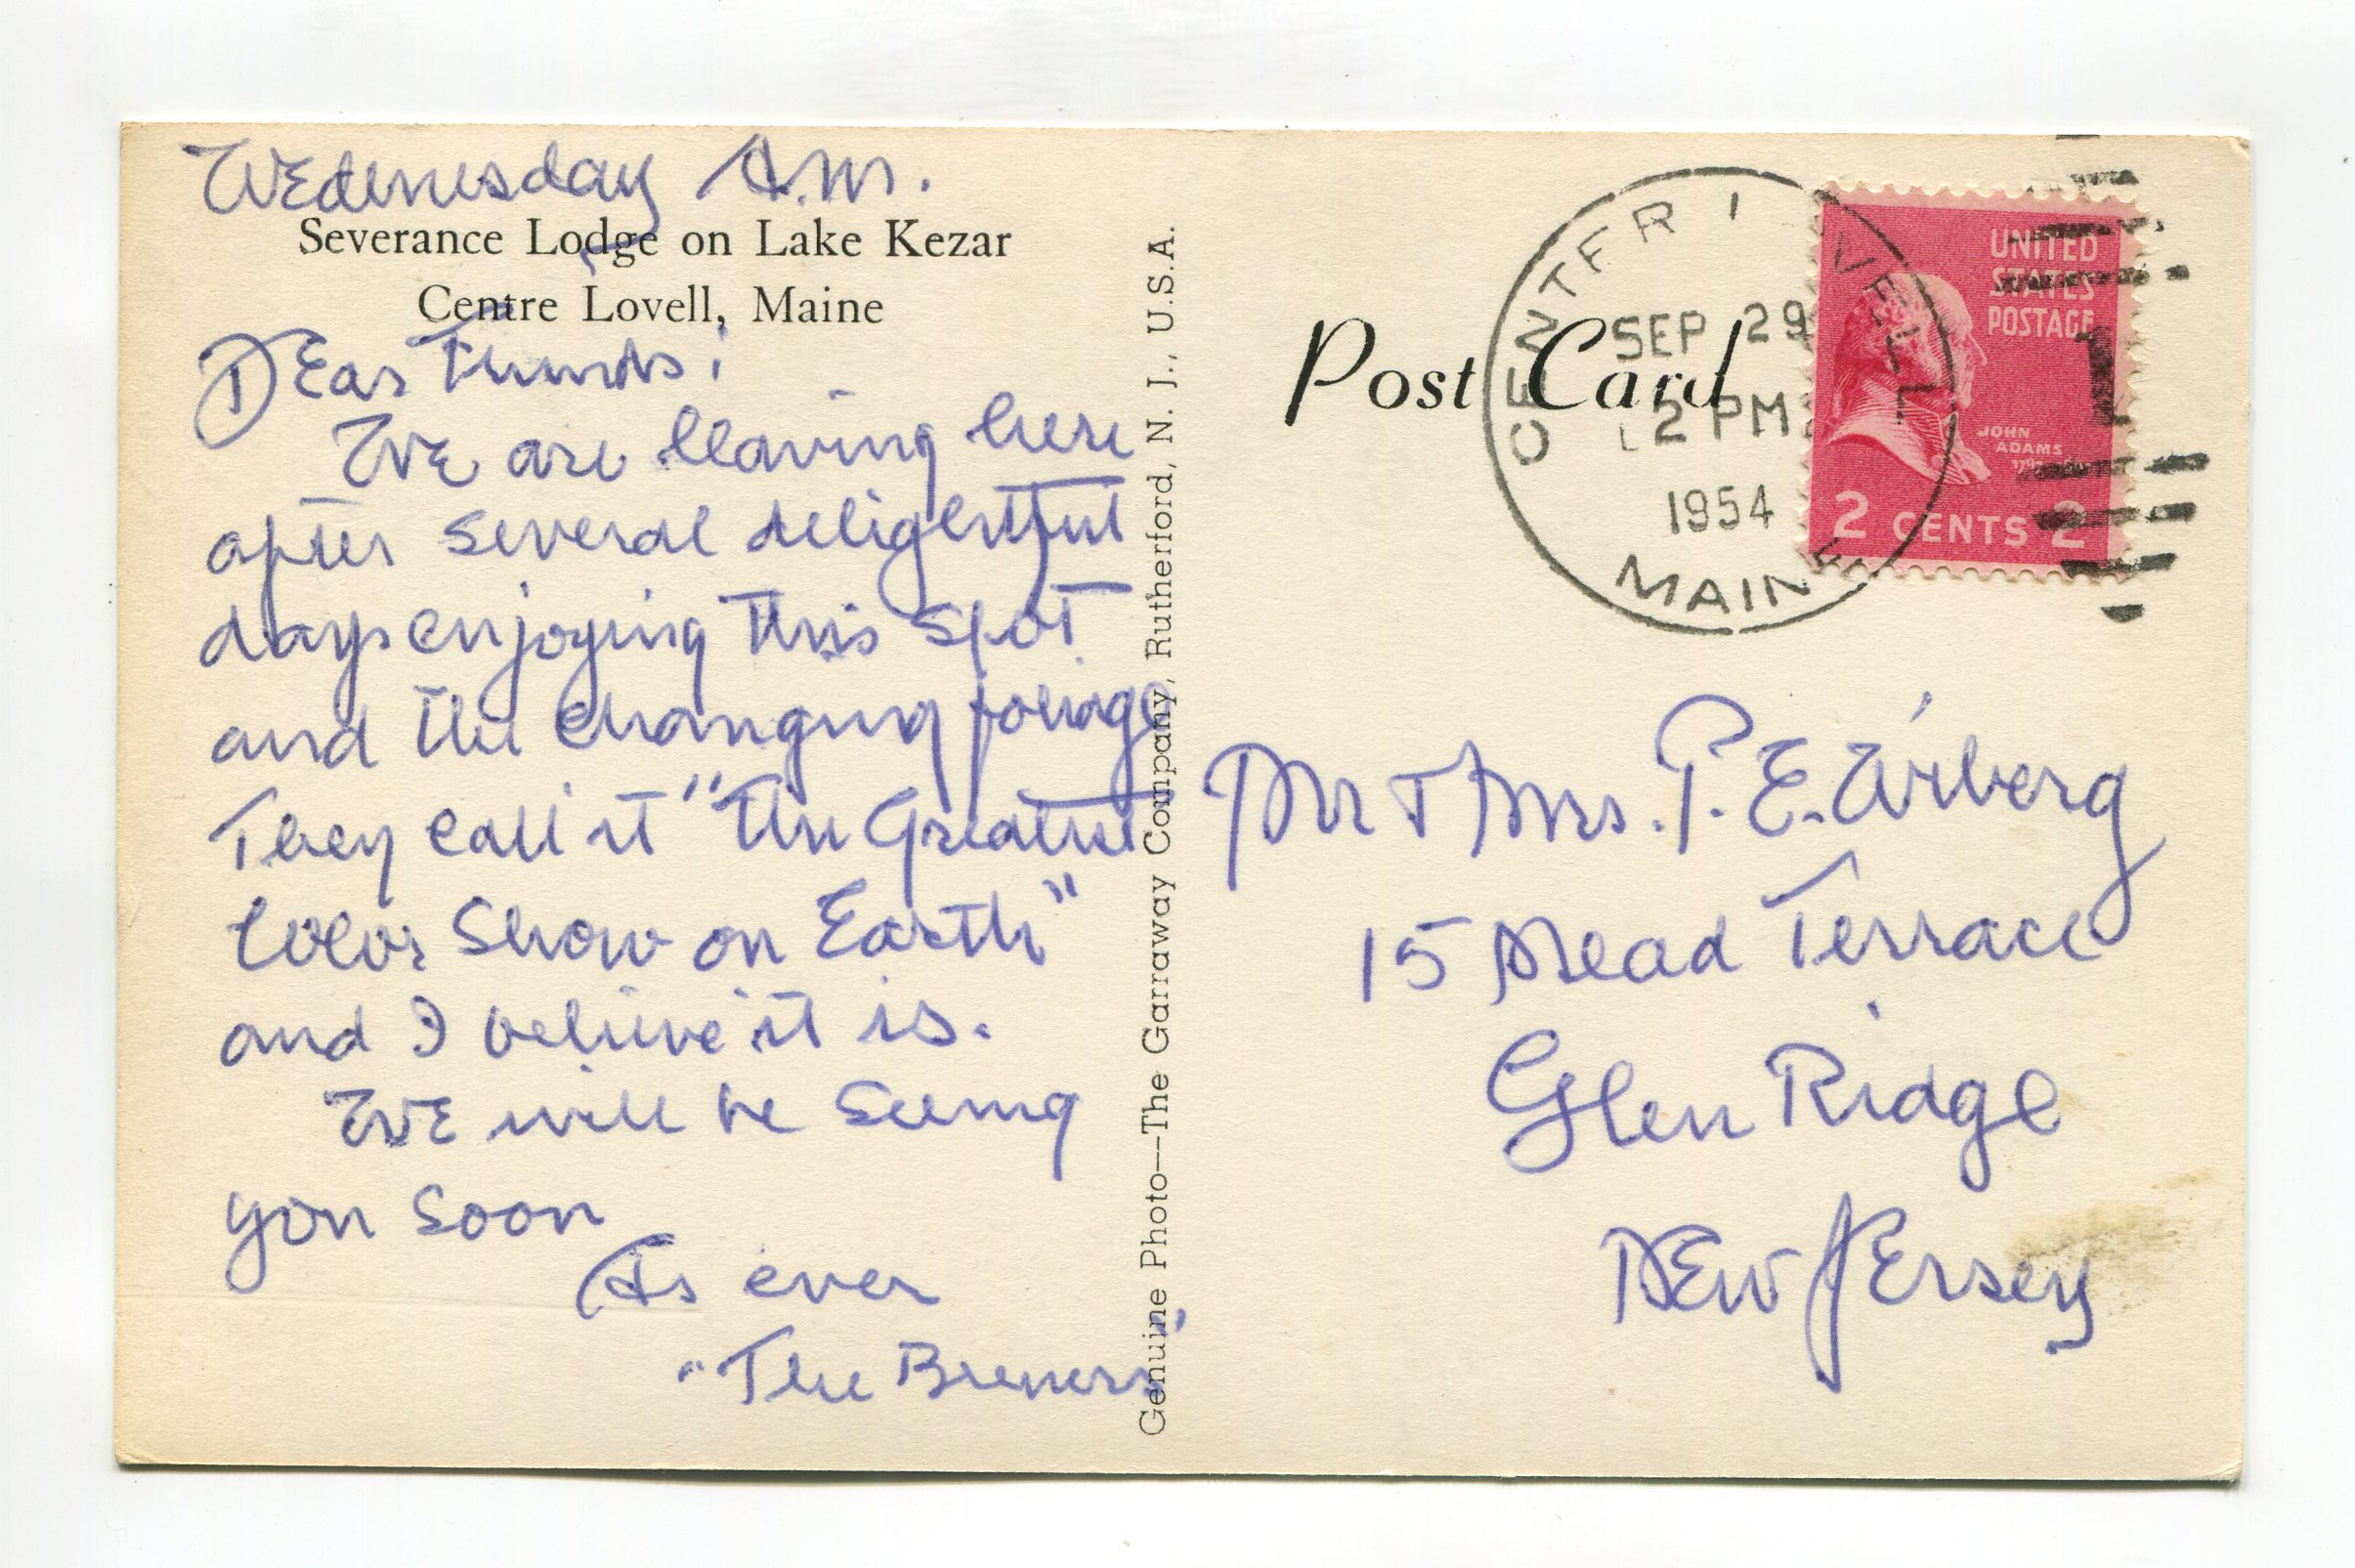 Wednesday A.M.
Severance Lodge on Lake Kezar
Centre Lovell, Maine
Dear Friends:
We are leaving here
after several delightful
days enjoying this spot
and the changing foliage
They call it "The Greatest
Color Show on Earth"
and I believe it is.
We will be seeing
you soon
As ever
"The Breners"
Genuine Photo—The Garraway Company, Rutherford, N. J., U.S.A.
Post Card
CENTER LOVELL
SEP 29
12 PM
1954
MAINE
UNITED
STATES
POSTAGE
JOHN
ADAMS
2 CENTS 2
Mr + Mrs. P. E.
15 Mead Terrace
Glen Ridge
New Jersey